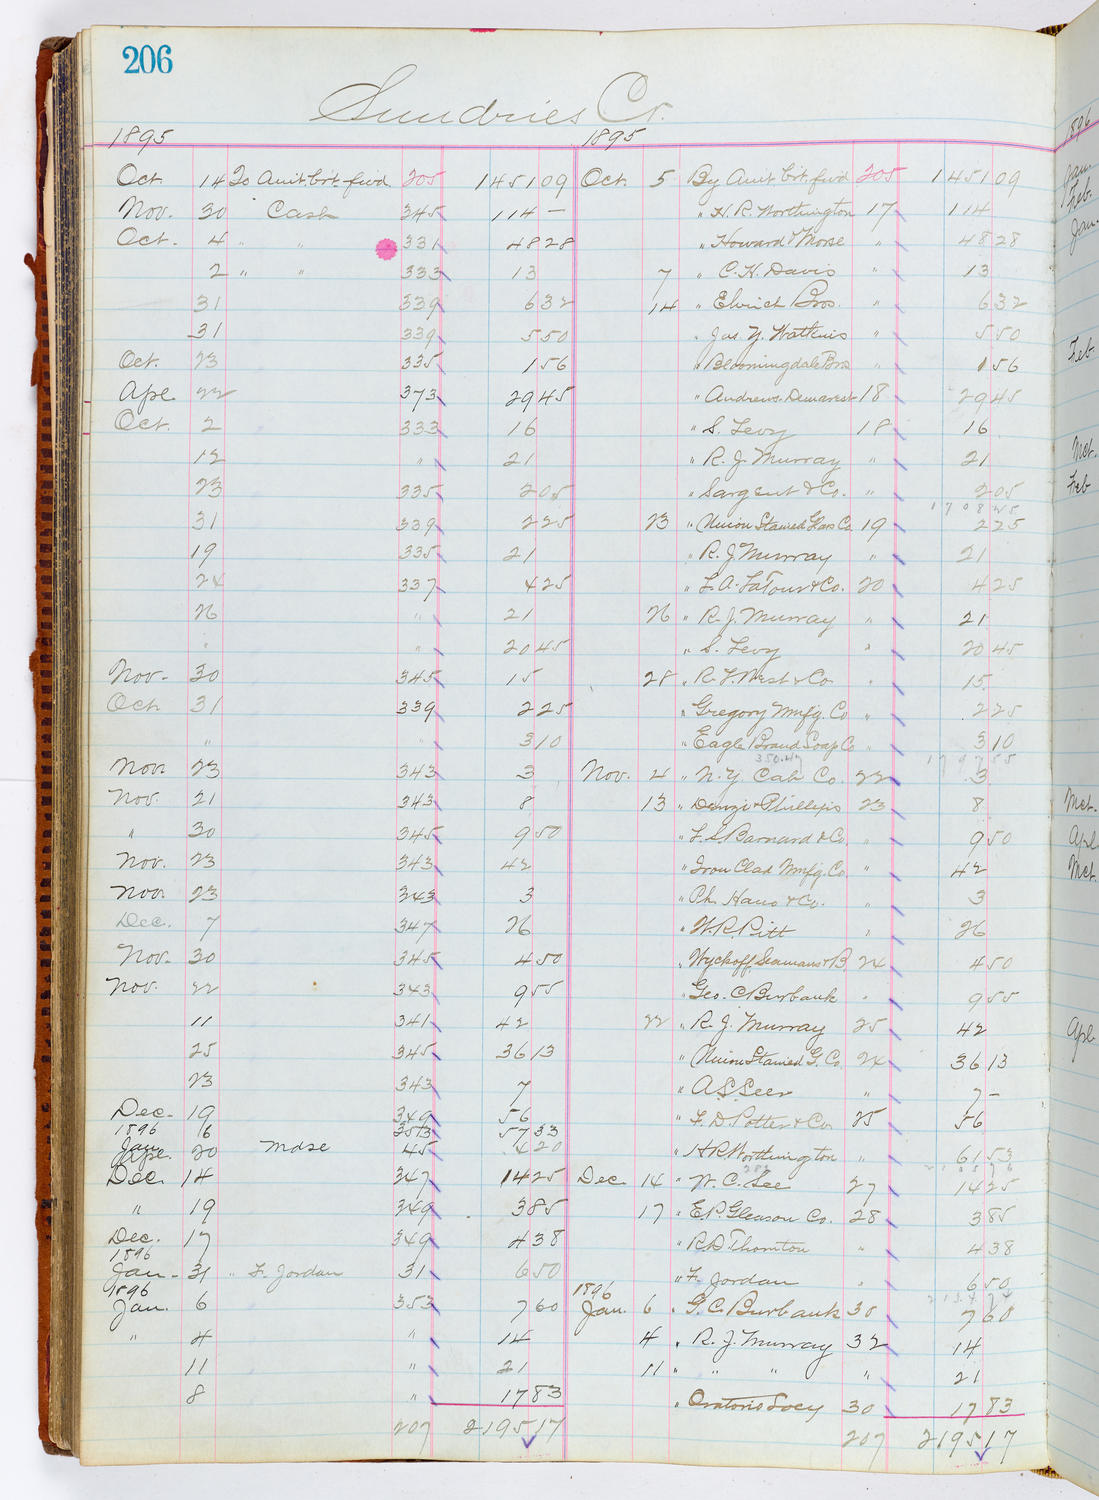 206
Sundries Cr.
1895 1895
Oct. 14 To Amt. brt. fwd 205 1451 09 Oct. 5 By Amt brt. fwd 205 1451 09
Nov. 30 Cash 345 114 — " H. R. Worthington 17 114
Oct. 4 " " 331 48 28 " Howard & Morse " 48 28
2 " " 333 13 7 " C. H. Davis " 13
31 339 6 32 14 " Ehrich Bros. " 6 32
31 339 5 50 " Jas. Y. Watkins " 5 50
Oct. 23 335 1 56 " Bloomingdale Bros " 1 56
Ape 22 373 29 45 " Andrews Demarest 18 29 45
Oct. 2 333 16 " S. Levy 18 16
12 " 21 " R. J. Murray " 21
23 335 2 05 " Sargent & Co. " 2 05
1708 45
31 339 2 25 23 " Union Stained Glass Co. 19 2 25
19 335 21 " R. J. Murray " 21
24 337 4 25 " L. A. LaTour & Co. 20 4 25
26 " 21 26 " R. J. Murray " 21
" " 20 45 " S. Levy " 20 45
Nov. 30 345 15 28 " R. F. West & Co " 15
Oct 31 339 2 25 " Gregory Mnfg. Co " 2 25
" " 3 10 " Eagle Brand Soap Co " 3 10
350.47 1797 55
Nov. 23 343 3 Nov. 4 " N. Y. Cab Co. 22 3
Nov. 21 343 8 13 " Denzi & Phillips 23 8
" 30 345 9 50 " L. S. Barnard & Co. " 9 50
Nov. 23 343 42 " Iron Clad Mnfg. Co. " 42
Nov. 23 343 3 " Ph. Hano & Co. " 3
Dec. 7 347 26 " W. R. Pitt " 26
Nov. 30 345 4 50 " Wyckoff, Seamans & B. 24 4 50
Nov. 22 343 9 55 " Geo. C. Burbank " 9 55
11 341 42 22 " R. J. Murray 25 42
25 345 36 13 " Union Stained G. Co. 24 36 13
23 343 7 " A. S. Seer " 7 —
Dec. 19 349 56 " F. D. Potter & Co. 25 56
1896
Jan. 6 353 57 33
Ape. 20 Mdse 45 4 20 " H. R. Worthington " 61 53
Dec. 14 347 14 25 Dec. 14 " W. C. See 27 14 25
" 19 349 3 85 17 " E. P. Gleason Co. 28 3 85
Dec. 17 349 4 38 " R. D. Thornton " 4 38
1896
Jan. 31 " F. Jordan 31 6 50 " F. Jordan " 6 50
1896 1896
Jan. 6 353 7 60 Jan. 6 " G. C. Burbank 30 7 60
" 4 " 14 4 " R. J. Murray 32 14
11 " 21 11 " " " " 21
8 " 17 83 " Oratorio Socy 30 17 83
207 2195 17 207 2195 17
1896
Jan.
Feb.
Jan.
Feb.
Mct.
Feb
Mct.
Apl.
Mct.
Apl.